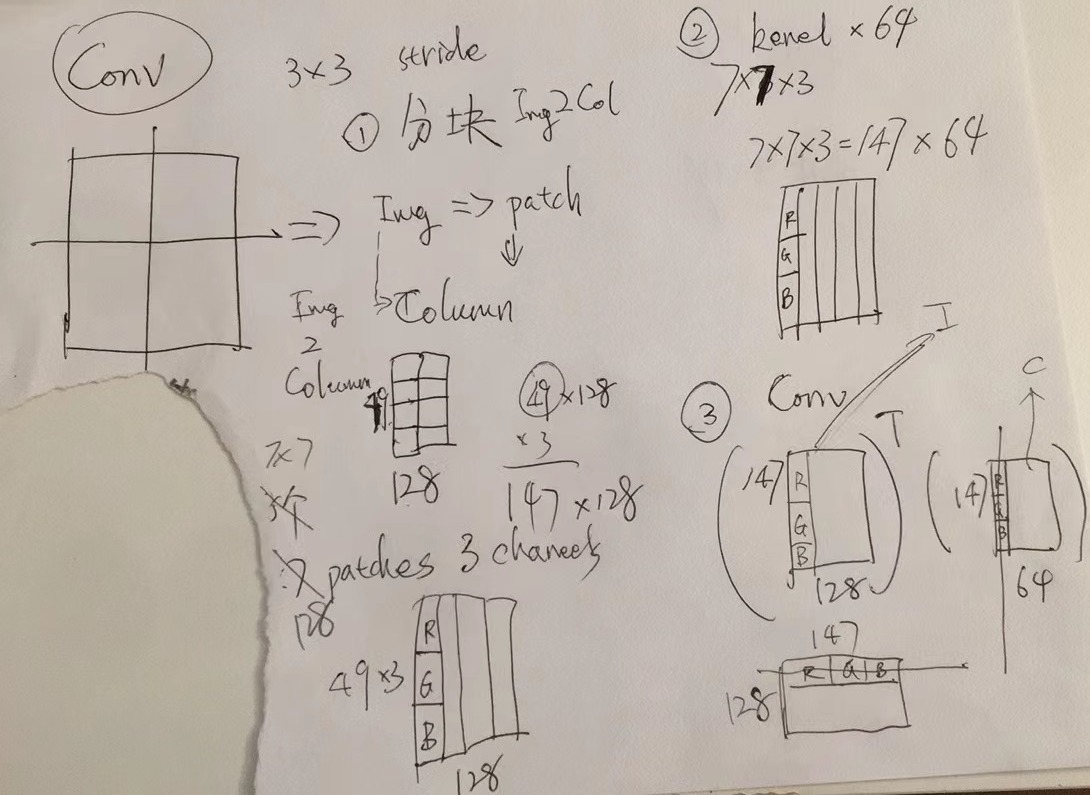 Conv
3×3 stride
① 分块 Img2Col
Img => patch
Column
Img
2
Column
49
128
49 ×128
×3
147 ×128
7×7
patches 3 chaneels
128
R
49 ×3 G
B
128
② kenel × 64
7×7×3
7×7×3=147 × 64
R
G
B
I
③ Conv
T
147 R
G
B
128
C
147 R
G
B
64
147
R G B
128